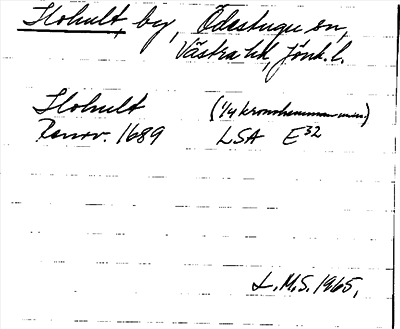 Flohult, by, Ödestugu sn,
Västra hd, Jönk. l.
Flohult (1/4 kronohemman
Renov. 1689 LSA E32
L.M.S. 1965.